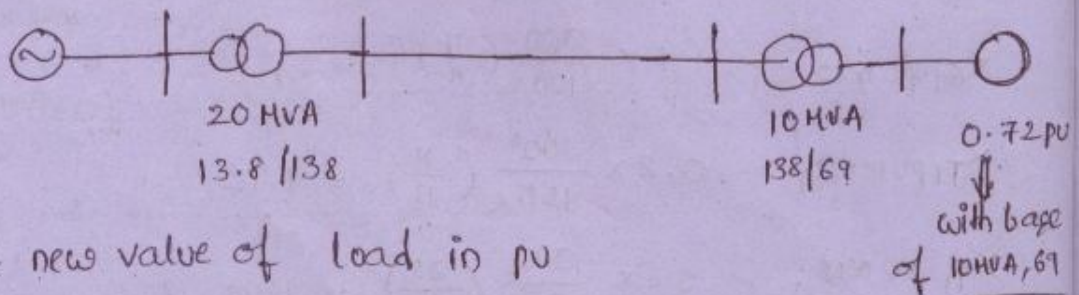 20 MVA
13.8/138
10 MVA
138/69
0.72 pu
with base
of 10MVA, 69
new value of load in pu